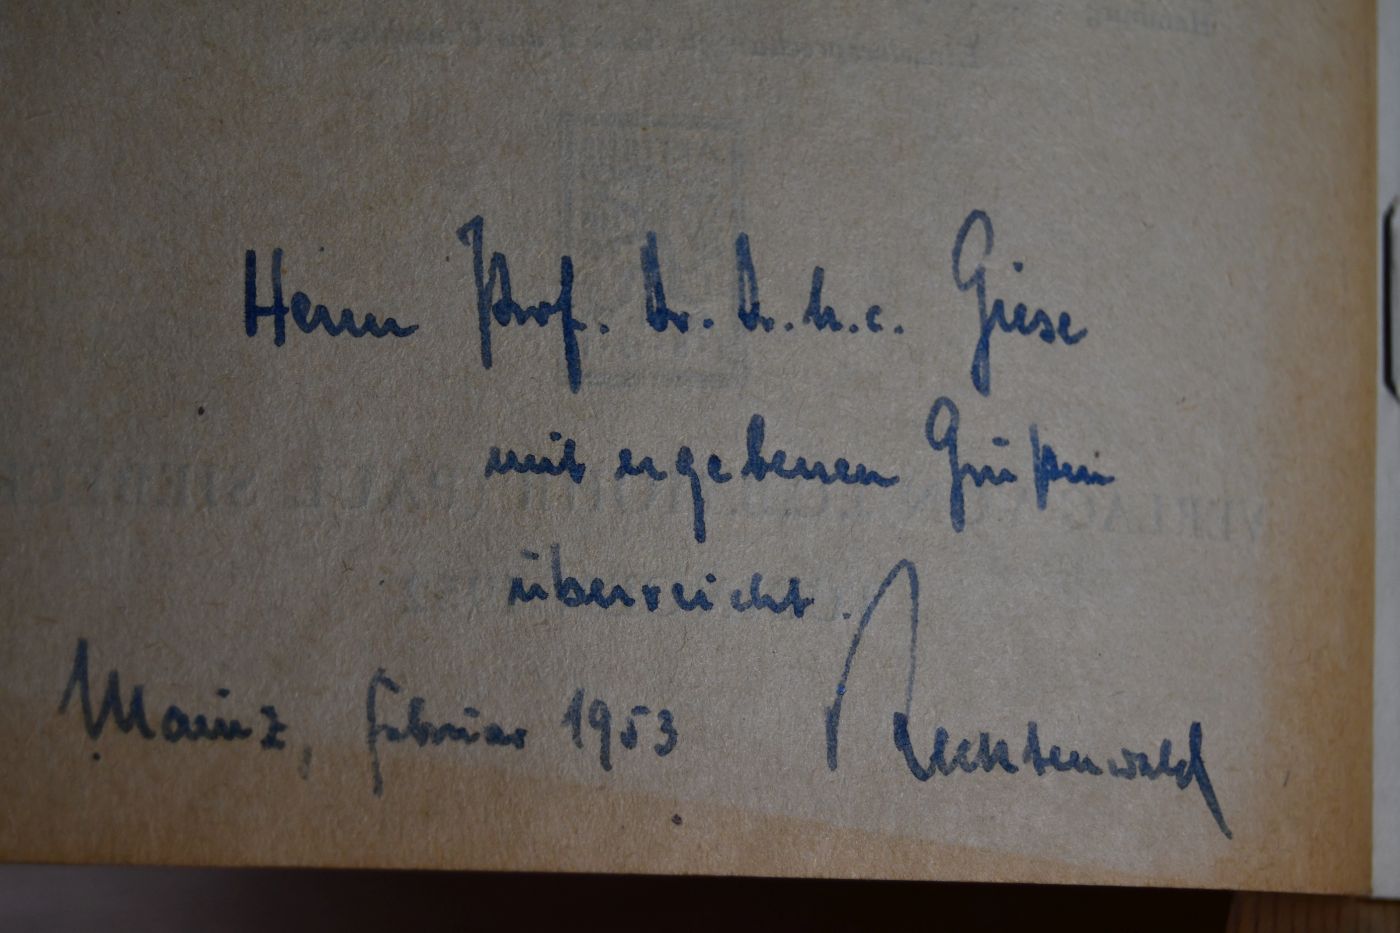 Herrn Prof. Dr. Dr. h. c. Giese
mit ergebenen Grüßen
überreicht.
Mainz, Februar 1953 Recktenwald